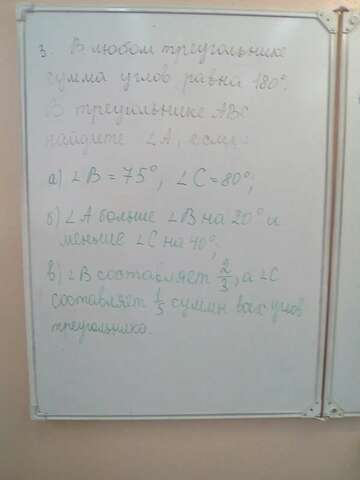 3. В любом треугольнике
сумма углов равна 180°.
В треугольнике ABC
найдите ∠A, если:
а) ∠B = 75°, ∠C = 80°;
б) ∠A больше ∠B на 20° и
меньше ∠C на 40°;
в) ∠B составляет 2/3, а ∠C
составляет суммы всех углов
треугольника.